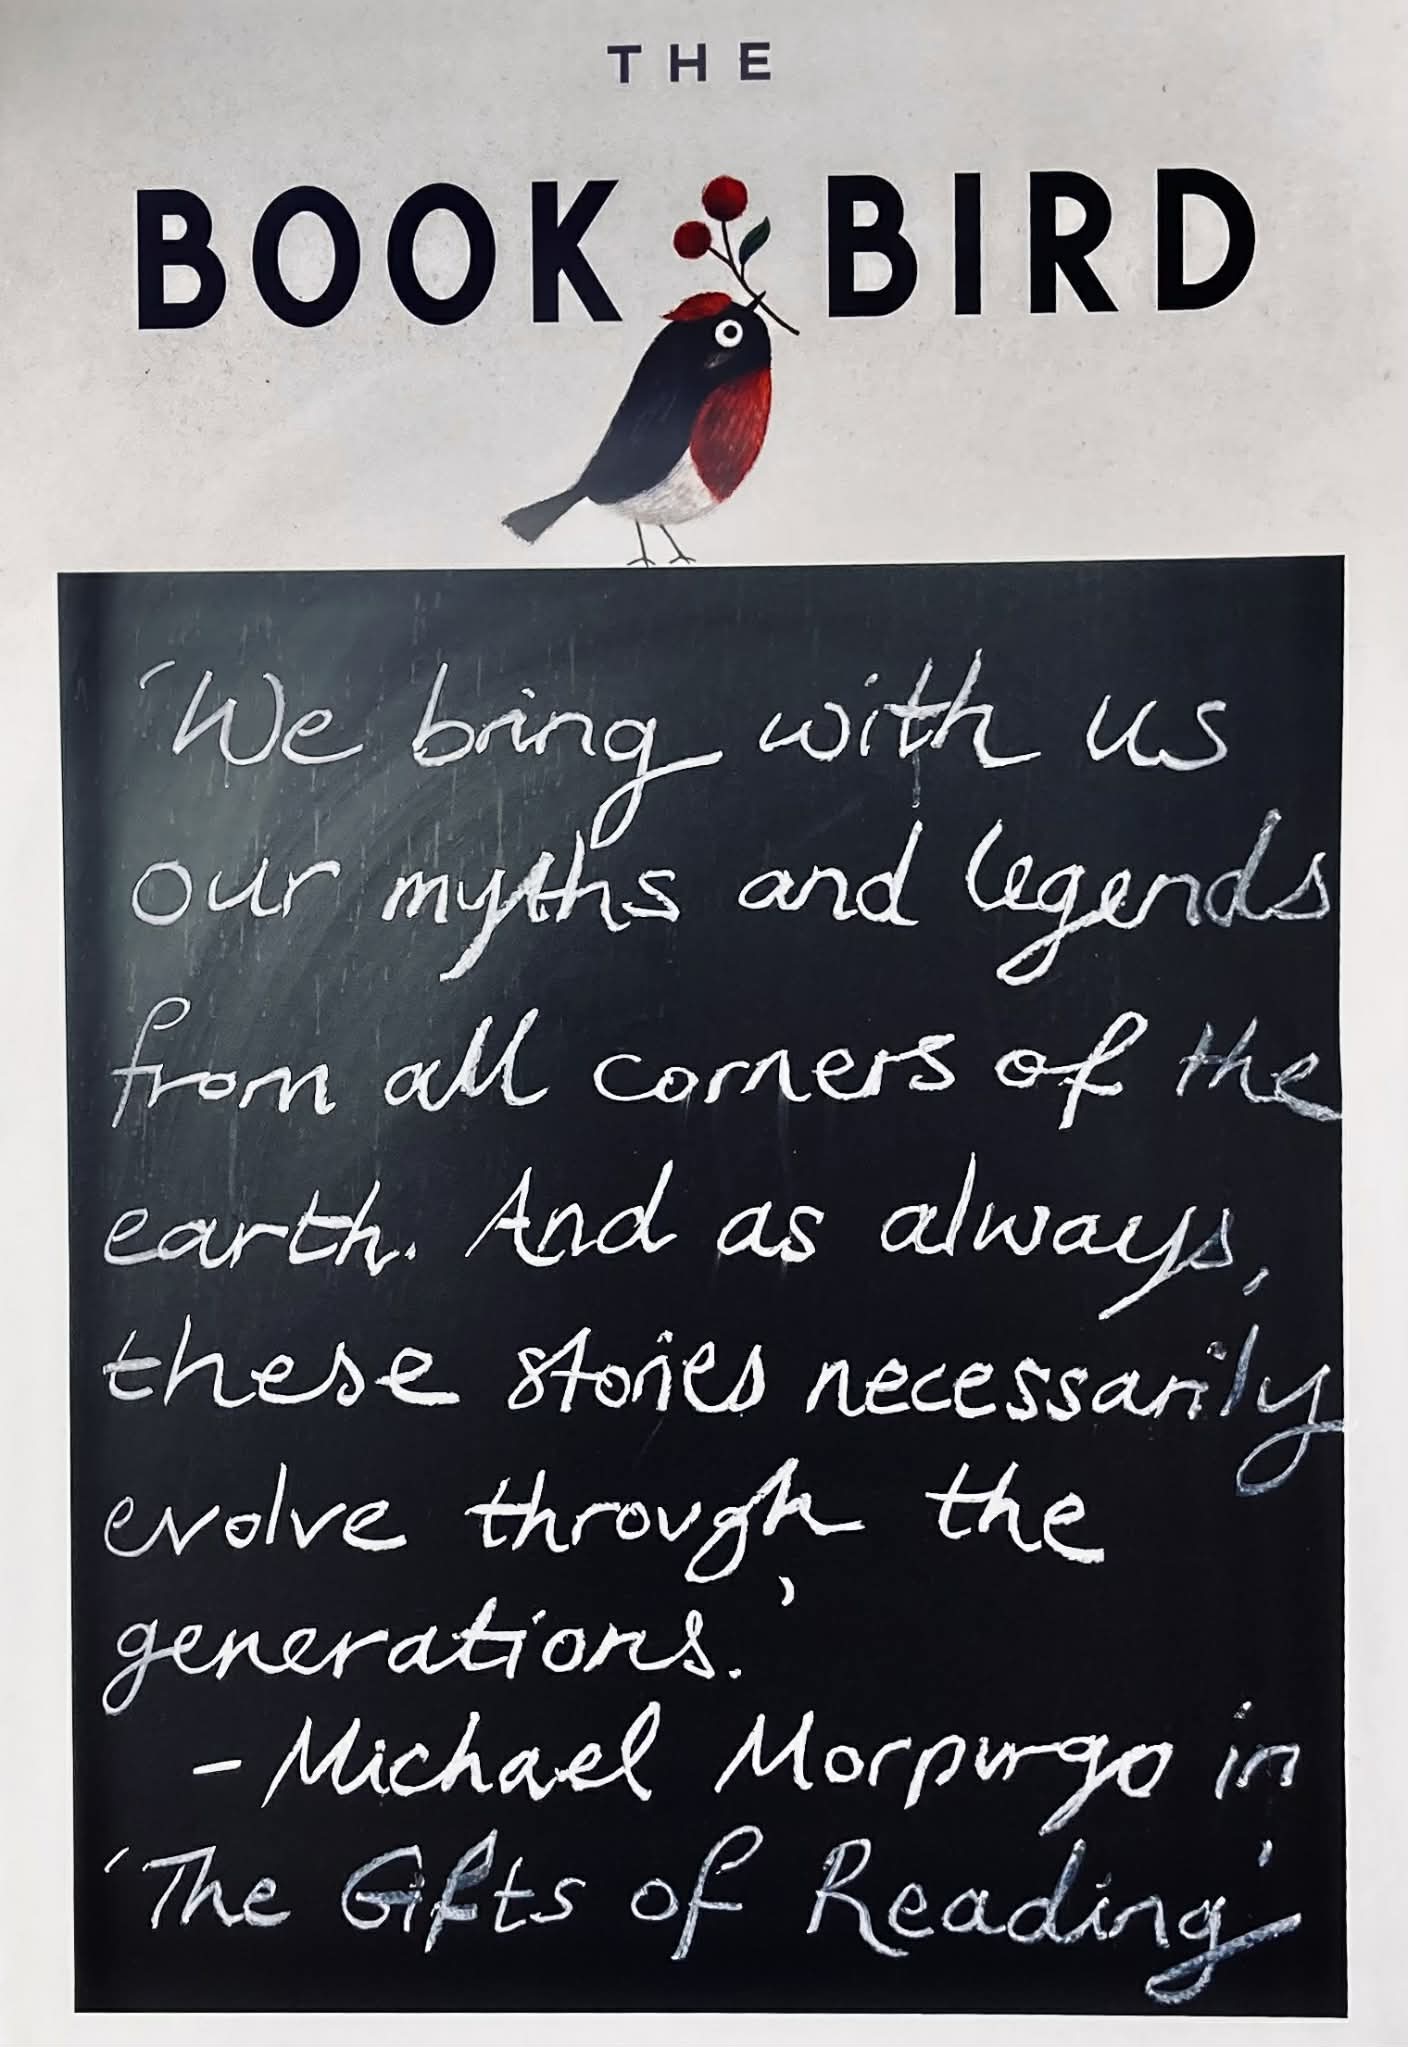 THE
BOOK BIRD
'We bring with us
our myths and legends
from all corners of the
earth. And as always,
these stories necessarily
evolve through the
generations.'
- Michael Morpurgo in
'The Gifts of Reading'